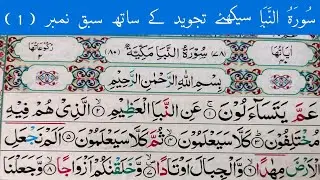 سورۃ النَّبَا سیکھئے تجوید کے ساتھ سبق نمبر (۱)
اٰیاتہا ۴۰ ﴿۷۸﴾ سُوْرَةُ النَّبَاِ مَكِّيَّةٌ ﴿۸۰﴾ رکوعاتہا ۲
بِسْمِ اللّٰهِ الرَّحْمٰنِ الرَّحِيْمِ
عَمَّ يَتَسَآءَلُوْنَ ﴿۱﴾ عَنِ النَّبَاِ الْعَظِيْمِ ﴿۲﴾ الَّذِيْ هُمْ فِيْهِ
مُخْتَلِفُوْنَ ﴿۳﴾ كَلَّا سَيَعْلَمُوْنَ ﴿۴﴾ ثُمَّ كَلَّا سَيَعْلَمُوْنَ ﴿۵﴾ اَلَمْ نَجْعَلِ
الْاَرْضَ مِهٰدًا ﴿۶﴾ وَّالْجِبَالَ اَوْتَادًا ﴿۷﴾ وَّخَلَقْنٰكُمْ اَزْوَاجًا ﴿۸﴾ وَّجَعَلْنَا